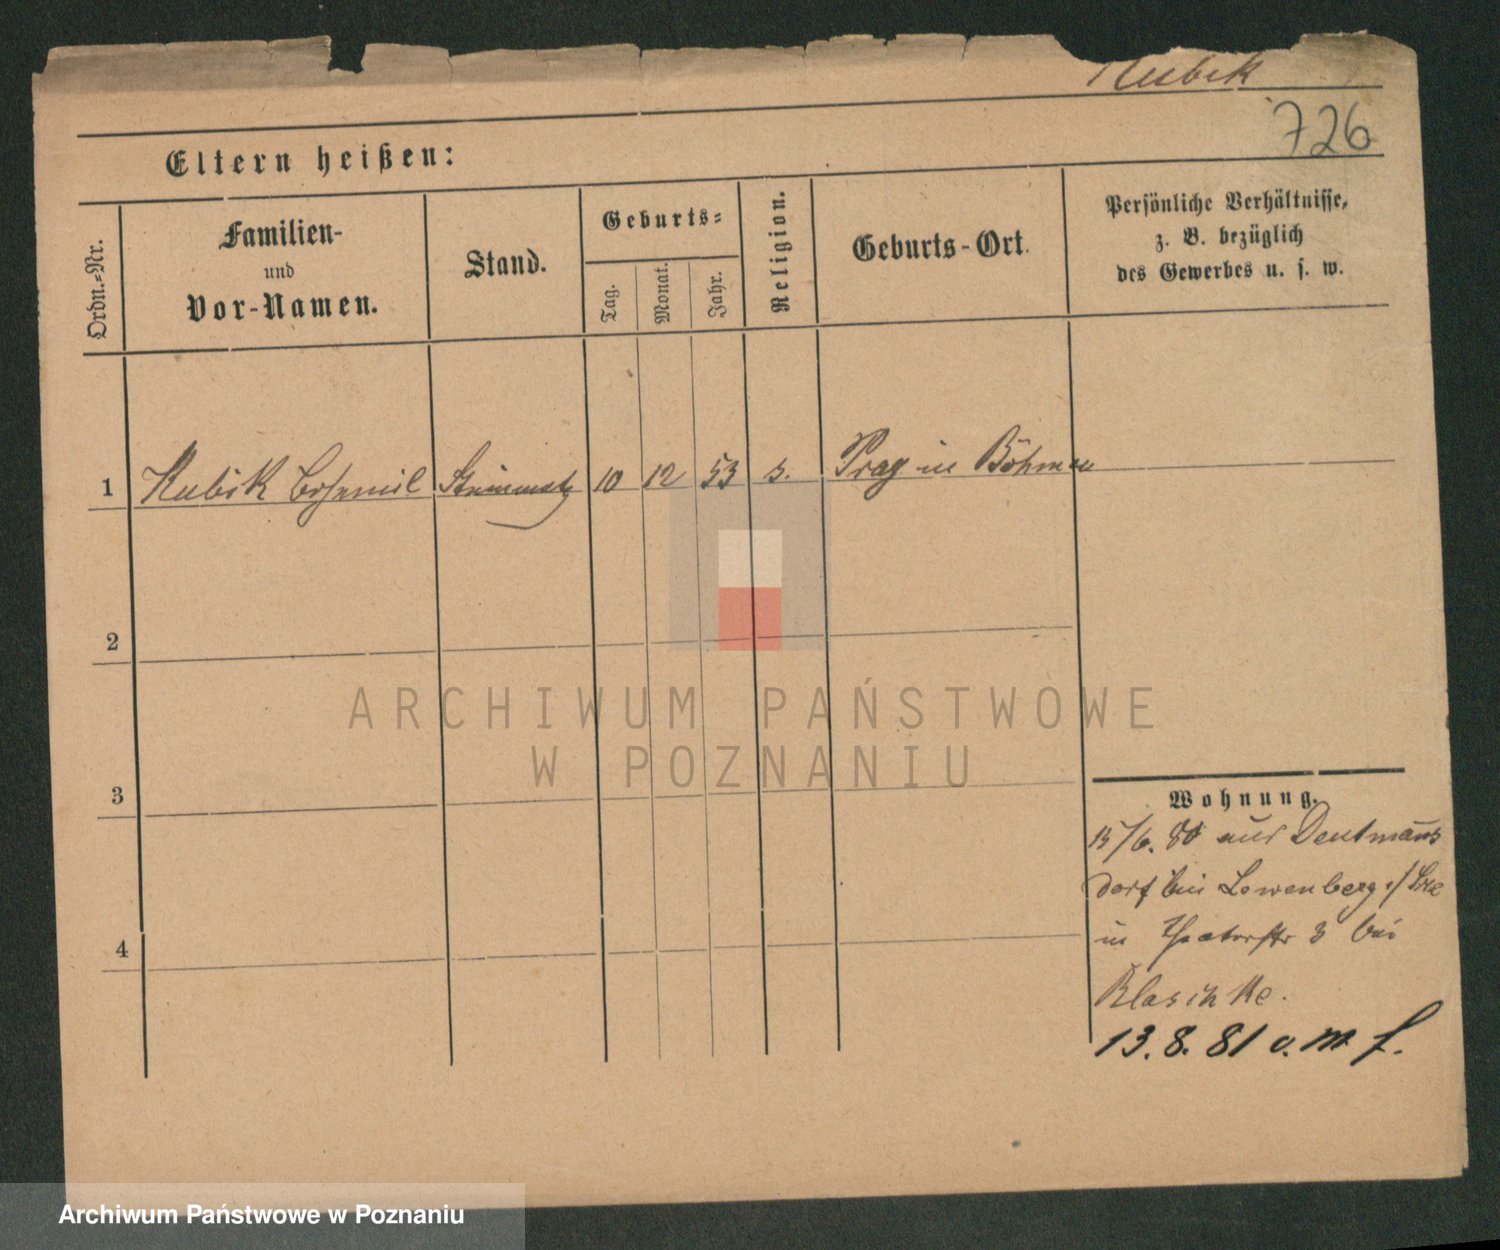 Kubik
726
Eltern heißen:
Ordn.-Nr.
Familien-
und
Vor-Namen.
Stand.
Geburts-
Tag.
Monat.
Jahr.
Religion.
Geburts-Ort.
Persönliche Verhältnisse,
z. B. bezüglich
des Gewerbes u. s. w.
1 Kubik Bohumil Steinmetz 10 12 53 Prag in Böhmen
2
3
4
Wohnung.
15/6. 80 aus Deutmanns
dorf bei Lowenberg
in Theaterstr 3 bei
Blaschke.
13.8.81 v. m f.
ARCHIWUM PAŃSTWOWE
W POZNANIU
Archiwum Państwowe w Poznaniu